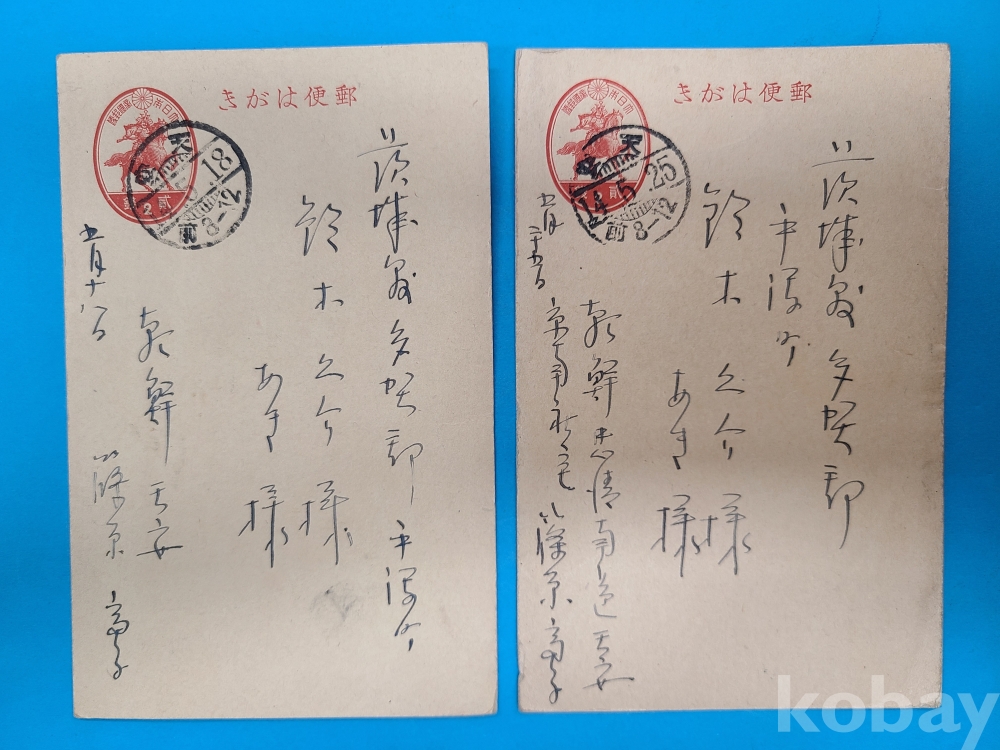 郵便はがき
茨城県多賀郡平潟町
鈴木久介様
あき様
五月十八日
朝鮮天安
篠原高子
大日本帝國郵便
貳
2
18
前8-12
郵便はがき
茨城県多賀郡
平潟町
鈴木久介様
あき様
五月二十五日
朝鮮忠清南道天安
篠原高子
大日本帝國郵便
貳
天安
14.5.25
前8-12
kobay